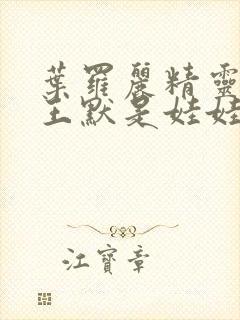 葉羅麗精靈
王默是娃娃
江寶章